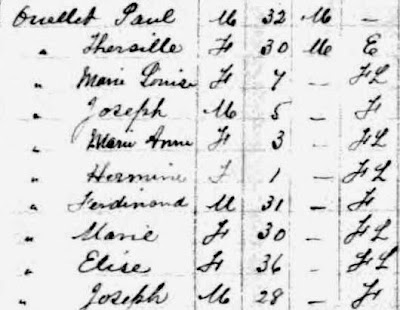 Ouellet Paul M 32 M –
" Thersille F 30 M E
" Marie Louise F 7 – FL
" Joseph M 5 – F
" Marie Anne F 3 – FL
" Hermine F 1 – FL
" Ferdinand M 31 – F
" Marie F 30 – FL
" Elise F 36 – FL
" Joseph M 28 – F